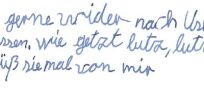 gerne wider nach Us
ssen. wie getzt lutz, lut
üß sie mal von mir